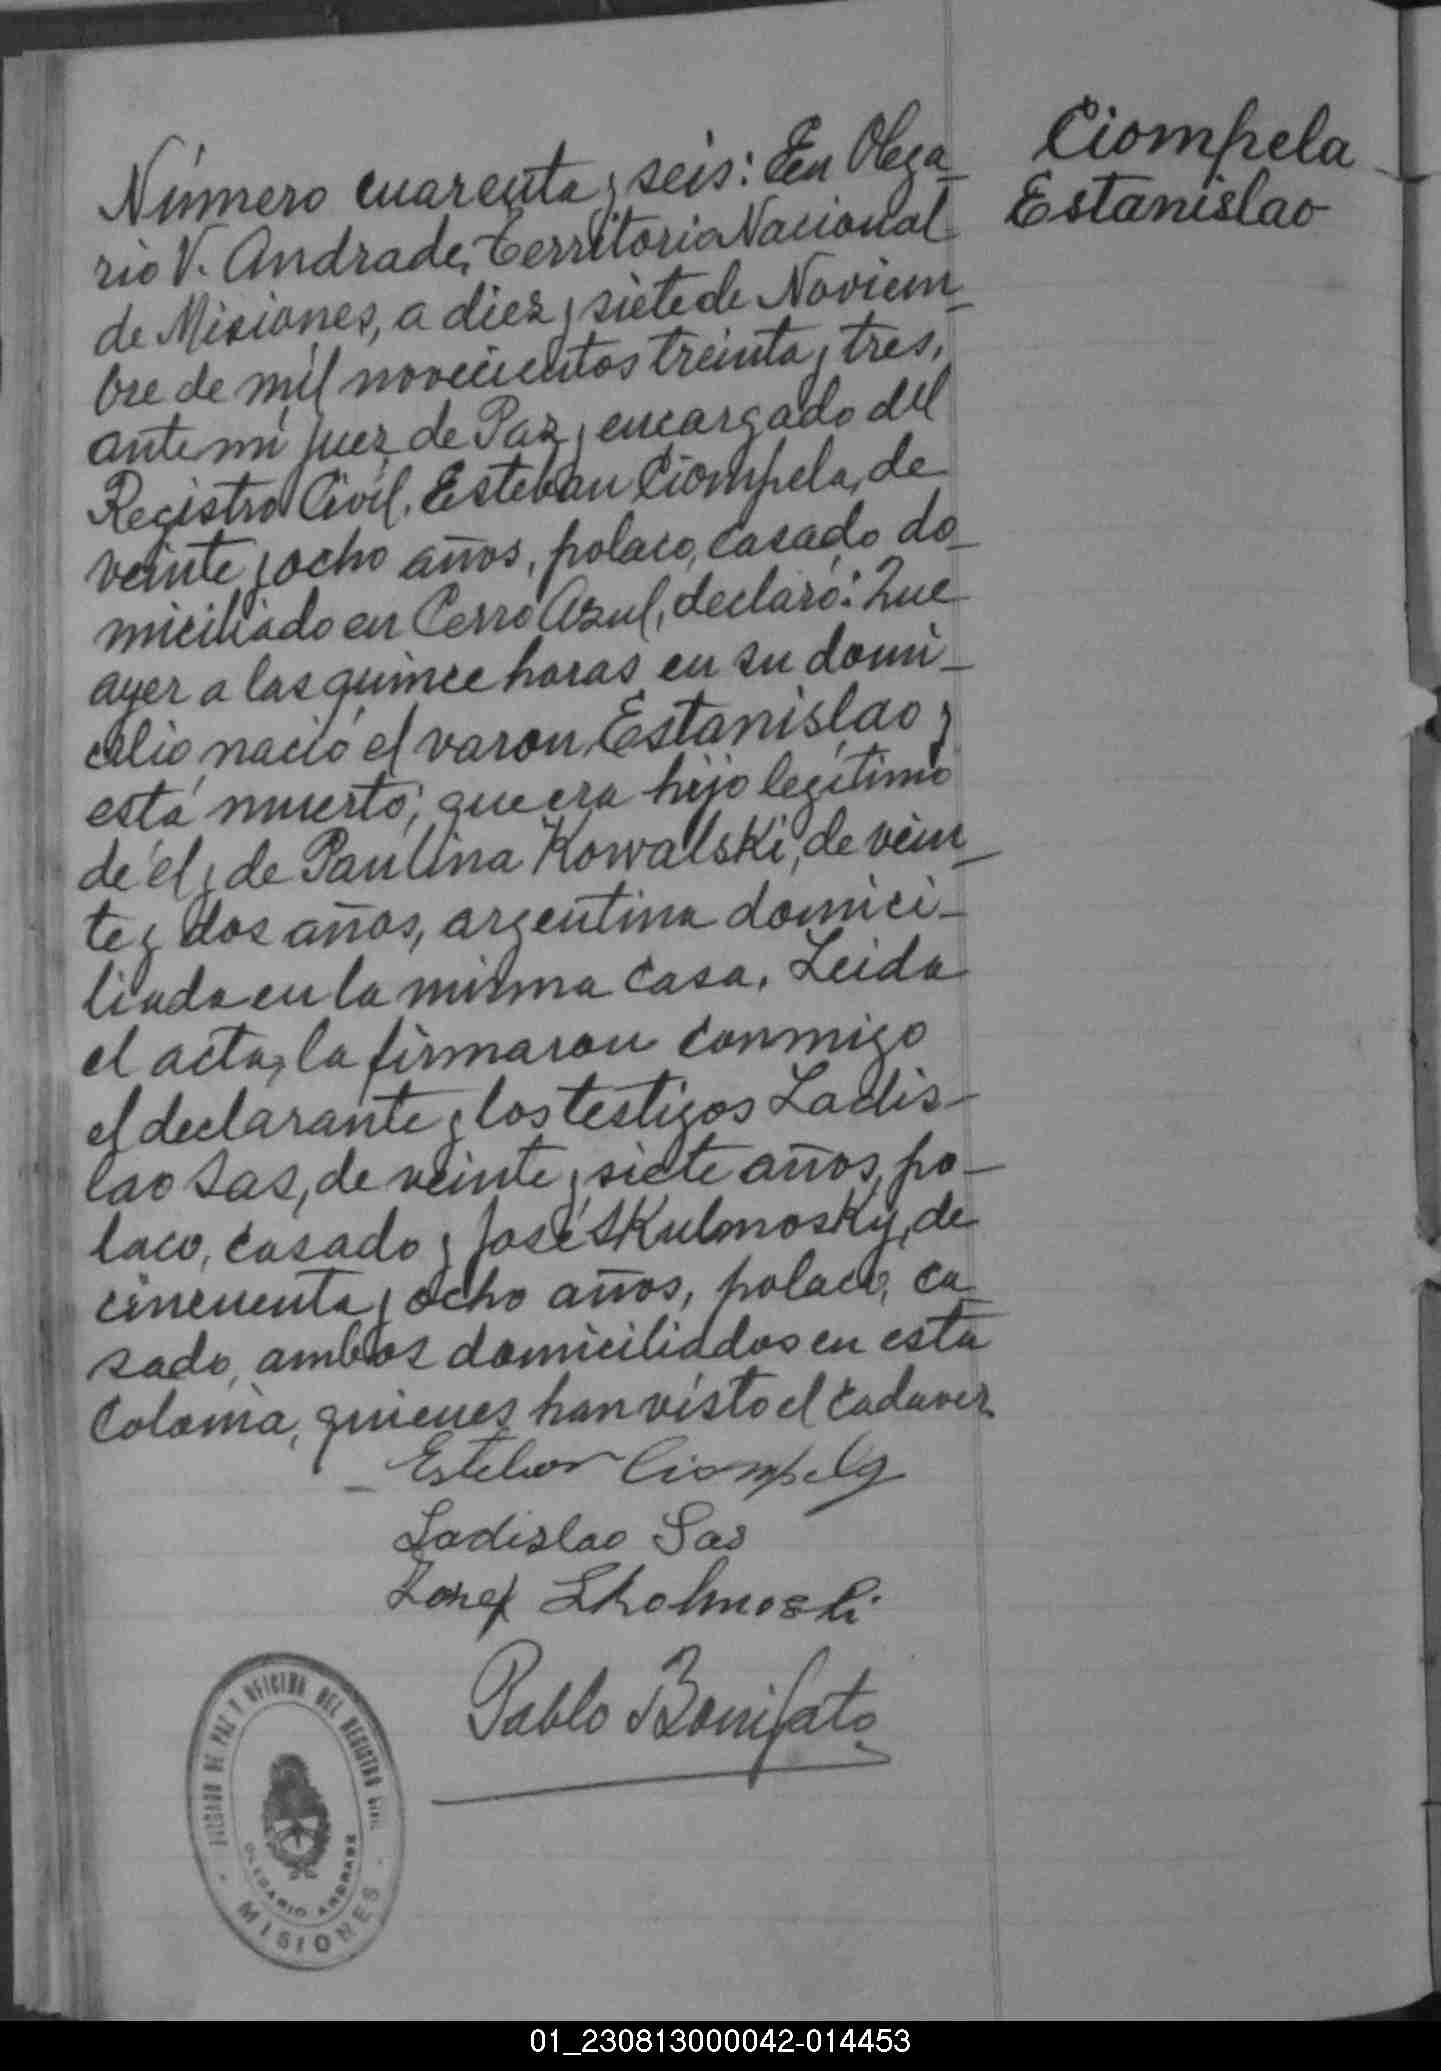 Ciompela
Estanislao
Número cuarenta y seis: En Olega-
rio V. Andrade, Territorio Nacional
de Misiones, a diez y siete de Noviem-
bre de mil novecientos treinta y tres,
ante mí Juez de Paz y encargado del
Registro Civil, Esteban Ciompela, de
veinte y ocho años, polaco, casado do-
miciliado en Cerro Azul, declaró: Que
ayer a las quince horas en su domi-
cilio nació el varon Estanislao y
está muerto; que era hijo legítimo
de él y de Paulina Kowalski, de vein-
te y dos años, argentina domici-
liada en la misma casa. Leida
el acta, la firmaron conmigo
el declarante y los testigos Ladis-
lao Sas, de veinte y siete años, po-
laco, casado y José SKulmosky, de
cincuenta y ocho años, polaco, ca-
sado, ambos domiciliados en esta
Colonia, quienes han visto el cadaver
Esteban Ciompela
Ladislao Sas
Jozef Skolmoski
Pablo Bonifato
JUZGADO DE PAZ Y OFICINA DEL REGISTRO CIVIL
OLEGARIO ANDRADE
MISIONES
01_230813000042-014453